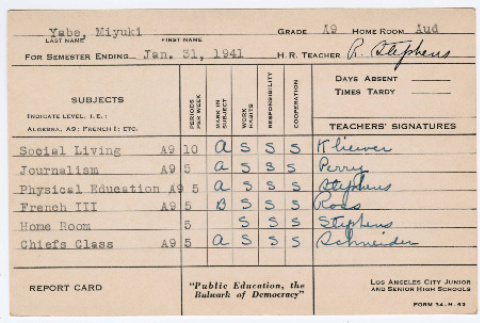 Yabe, Miyuki GRADE A9 HOME ROOM Aud
LAST NAME FIRST NAME
FOR SEMESTER ENDING Jan. 31, 1941 H.R. TEACHER R. Stephens
DAYS ABSENT
TIMES TARDY
SUBJECTS
INDICATE LEVEL, I.E.:
ALGEBRA, A9; FRENCH I; ETC.
PERIODS PER WEEK
MARK IN SUBJECT
WORK HABITS
RESPONSIBILITY
COOPERATION
TEACHERS' SIGNATURES
Social Living A9 10 A S S S Kliewer
Journalism A9 5 A S S S Perry
Physical Education A9 5 A S S S Stephens
French III A9 5 B S S S Ross
Home Room 5 S S S Stephens
Chiefs Class A9 5 A S S S Schneider
REPORT CARD
"Public Education, the
Bulwark of Democracy"
LOS ANGELES CITY JUNIOR
AND SENIOR HIGH SCHOOLS